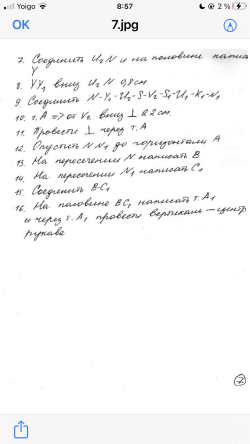 Yoigo
8:57
2 %
OK
7.jpg
7. Соединить U₂N и на половине напис
Y
8. YY₁ вниз U₂N 0,8 см
9. Соединить N-Y₁-U₂-S-V₂-S₁-U₁-K₁-N₁
10. т. A => от V₂ вниз ⊥ 2,2 см.
11. Провести ⊥ через т. A
12. Опустить N N₁ до горизонтали A
13. На пересечении N написать B
14. На пересечении N₁ написать C₁
15. Соединить B-C₁
16. На половине BC₁ написать т. A₁
и через т. A₁ провести вертикаль — центр
рукава
7